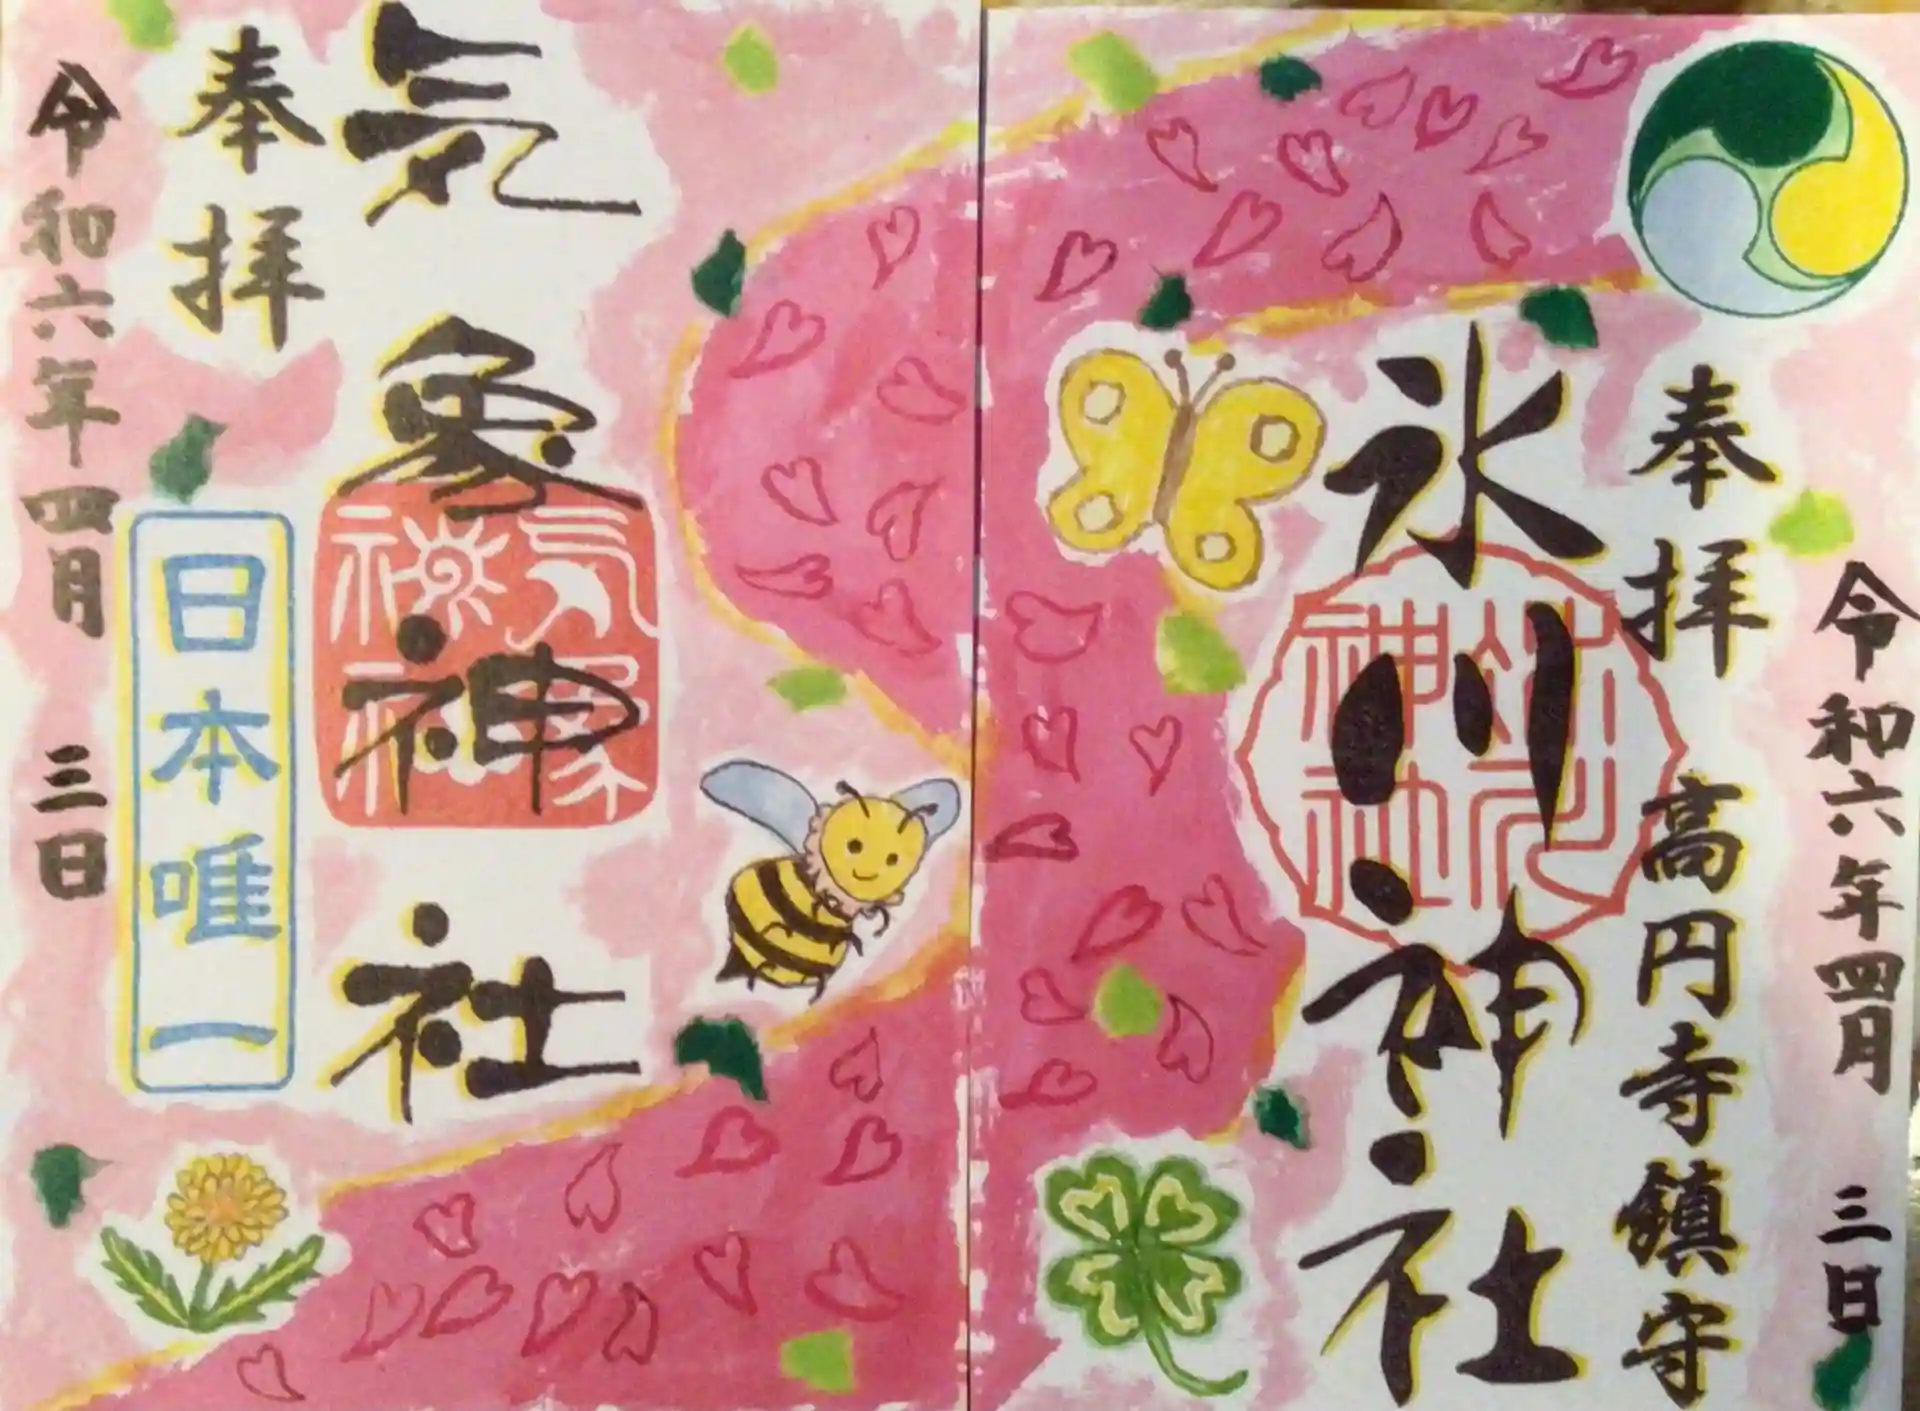 令和六年四月 三日
奉拝 高円寺鎮守
氷川神社
氷川神社
気象神社
気象神社
奉拝
日本唯一
令和六年四月 三日